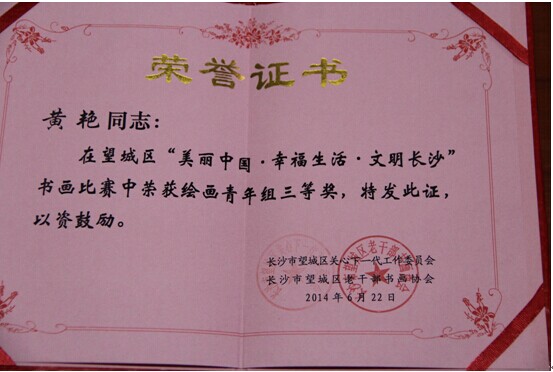 荣誉证书
黄艳同志：
在望城区“美丽中国·幸福生活·文明长沙”
书画比赛中荣获绘画青年组三等奖，特发此证，
以资鼓励。
长沙市望城区关心下一代工作委员会
长沙市望城区老干部书画协会
2014年6月22日